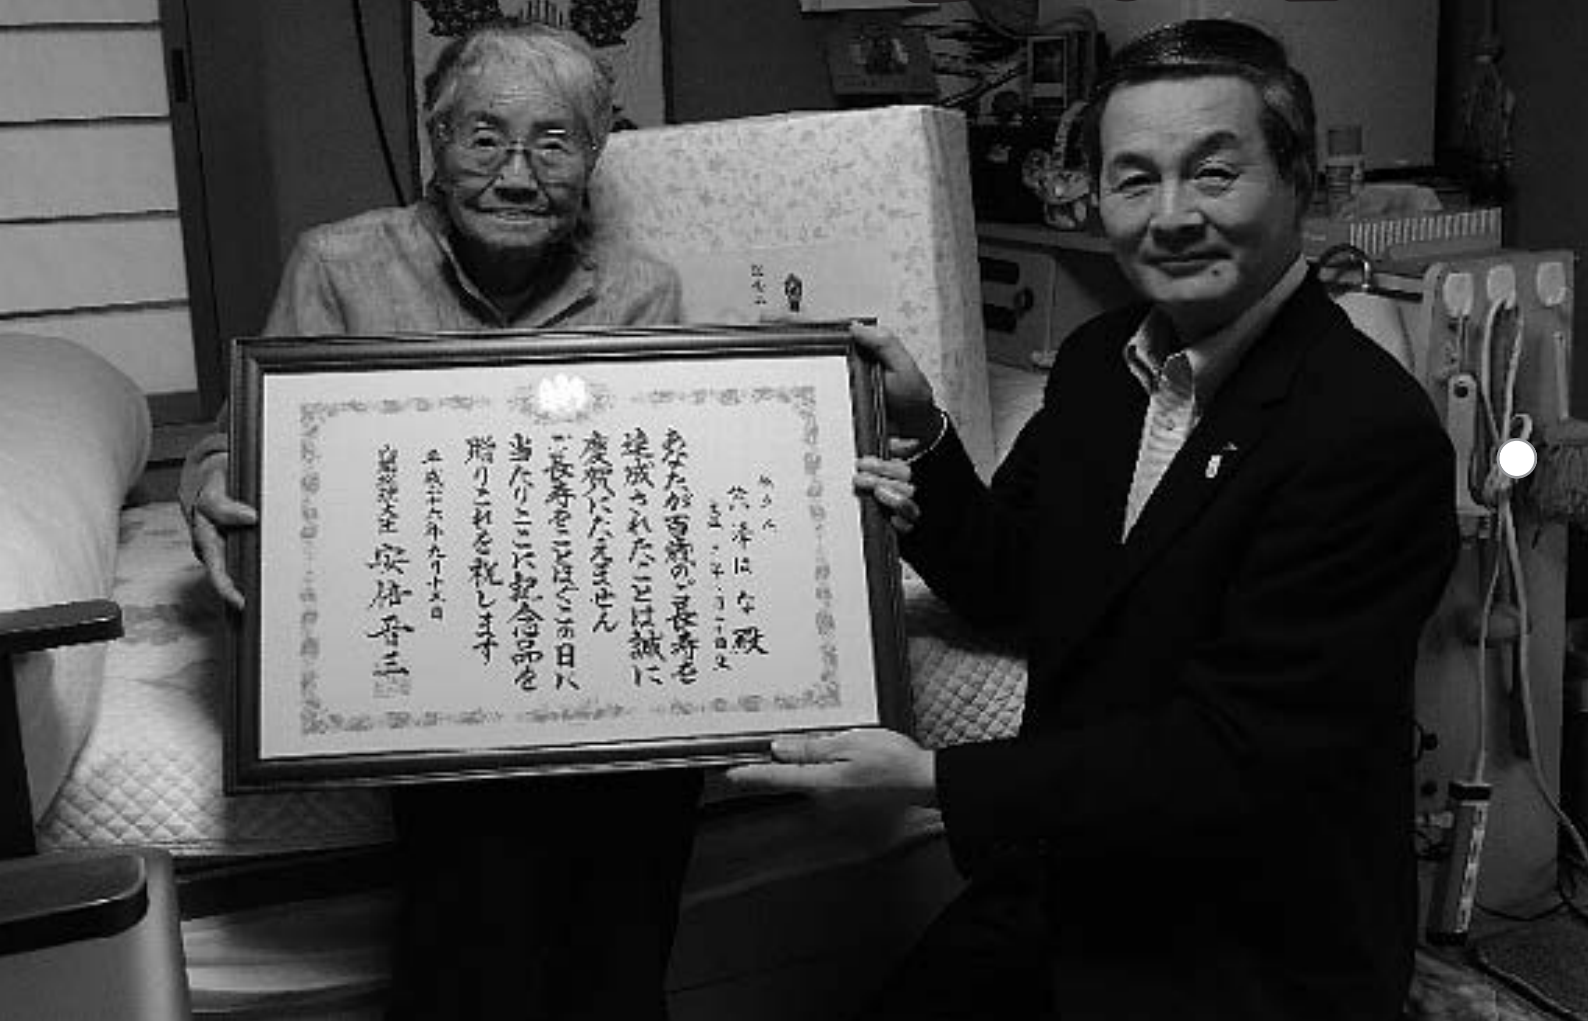 渋澤はな殿
あなたが百歳のご長寿を
達成されたことは誠に
慶賀にたえません
ご長寿をことほぐこの日に
当たりここに記念品を
贈りこれを祝します
平成二十六年九月十五日
内閣総理大臣 安倍晋三